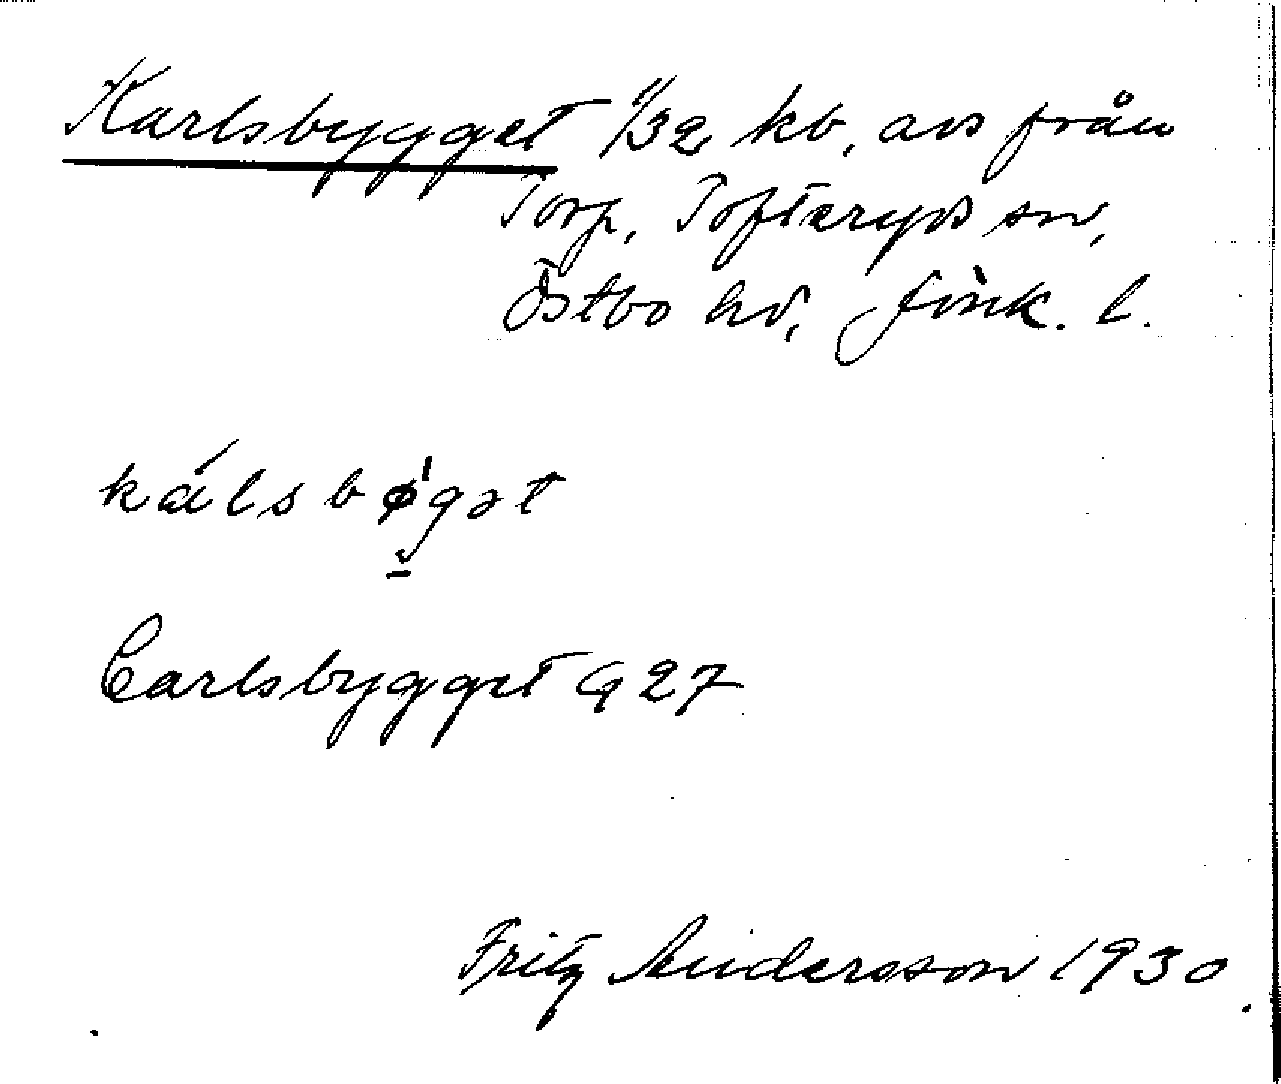 Karlsbygget 1/32 kb, avs från
Torp, Tofteryds sn,
Östbo hd, Jönk. l.
kálsbø̀gət
Carlsbygget G 27
Fritz Andersson 1930.